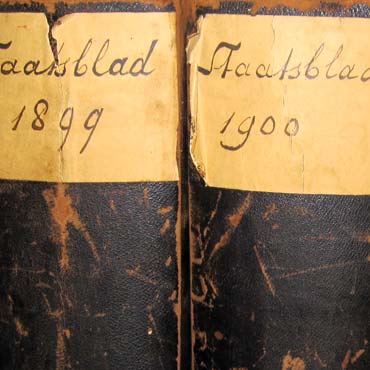 Staatsblad
1899
Staatsblad
1900